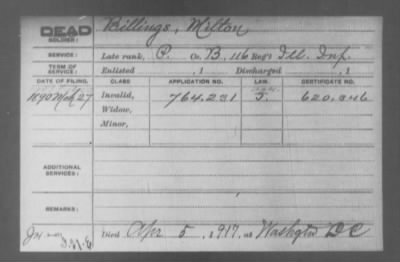 DEAD Billings, Milton
SOLDIER:
SERVICE: Late rank, P. Co. B, 116 Reg't Ill. Inf.
TERM OF SERVICE: Enlisted , 1 Discharged , 1
DATE OF FILING. CLASS APPLICATION NO. LAW. CERTIFICATE NO.
1890 Mch 27 Invalid, 764.231 620.846
Widow,
Minor,
ADDITIONAL SERVICES:
REMARKS:
Died Apr 5, 1917, at Washgtn D C